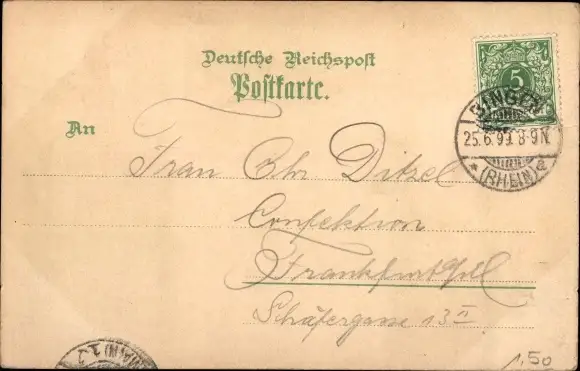 Deutsche Reichspost
Postkarte.
5
BINGEN
25.6.99. 8-9N.
* (RHEIN) c
An
Frau Chr Ditzel
Confektion
Frankfurt
Schäfergasse 13 II
(MAIN) 1.
1,50